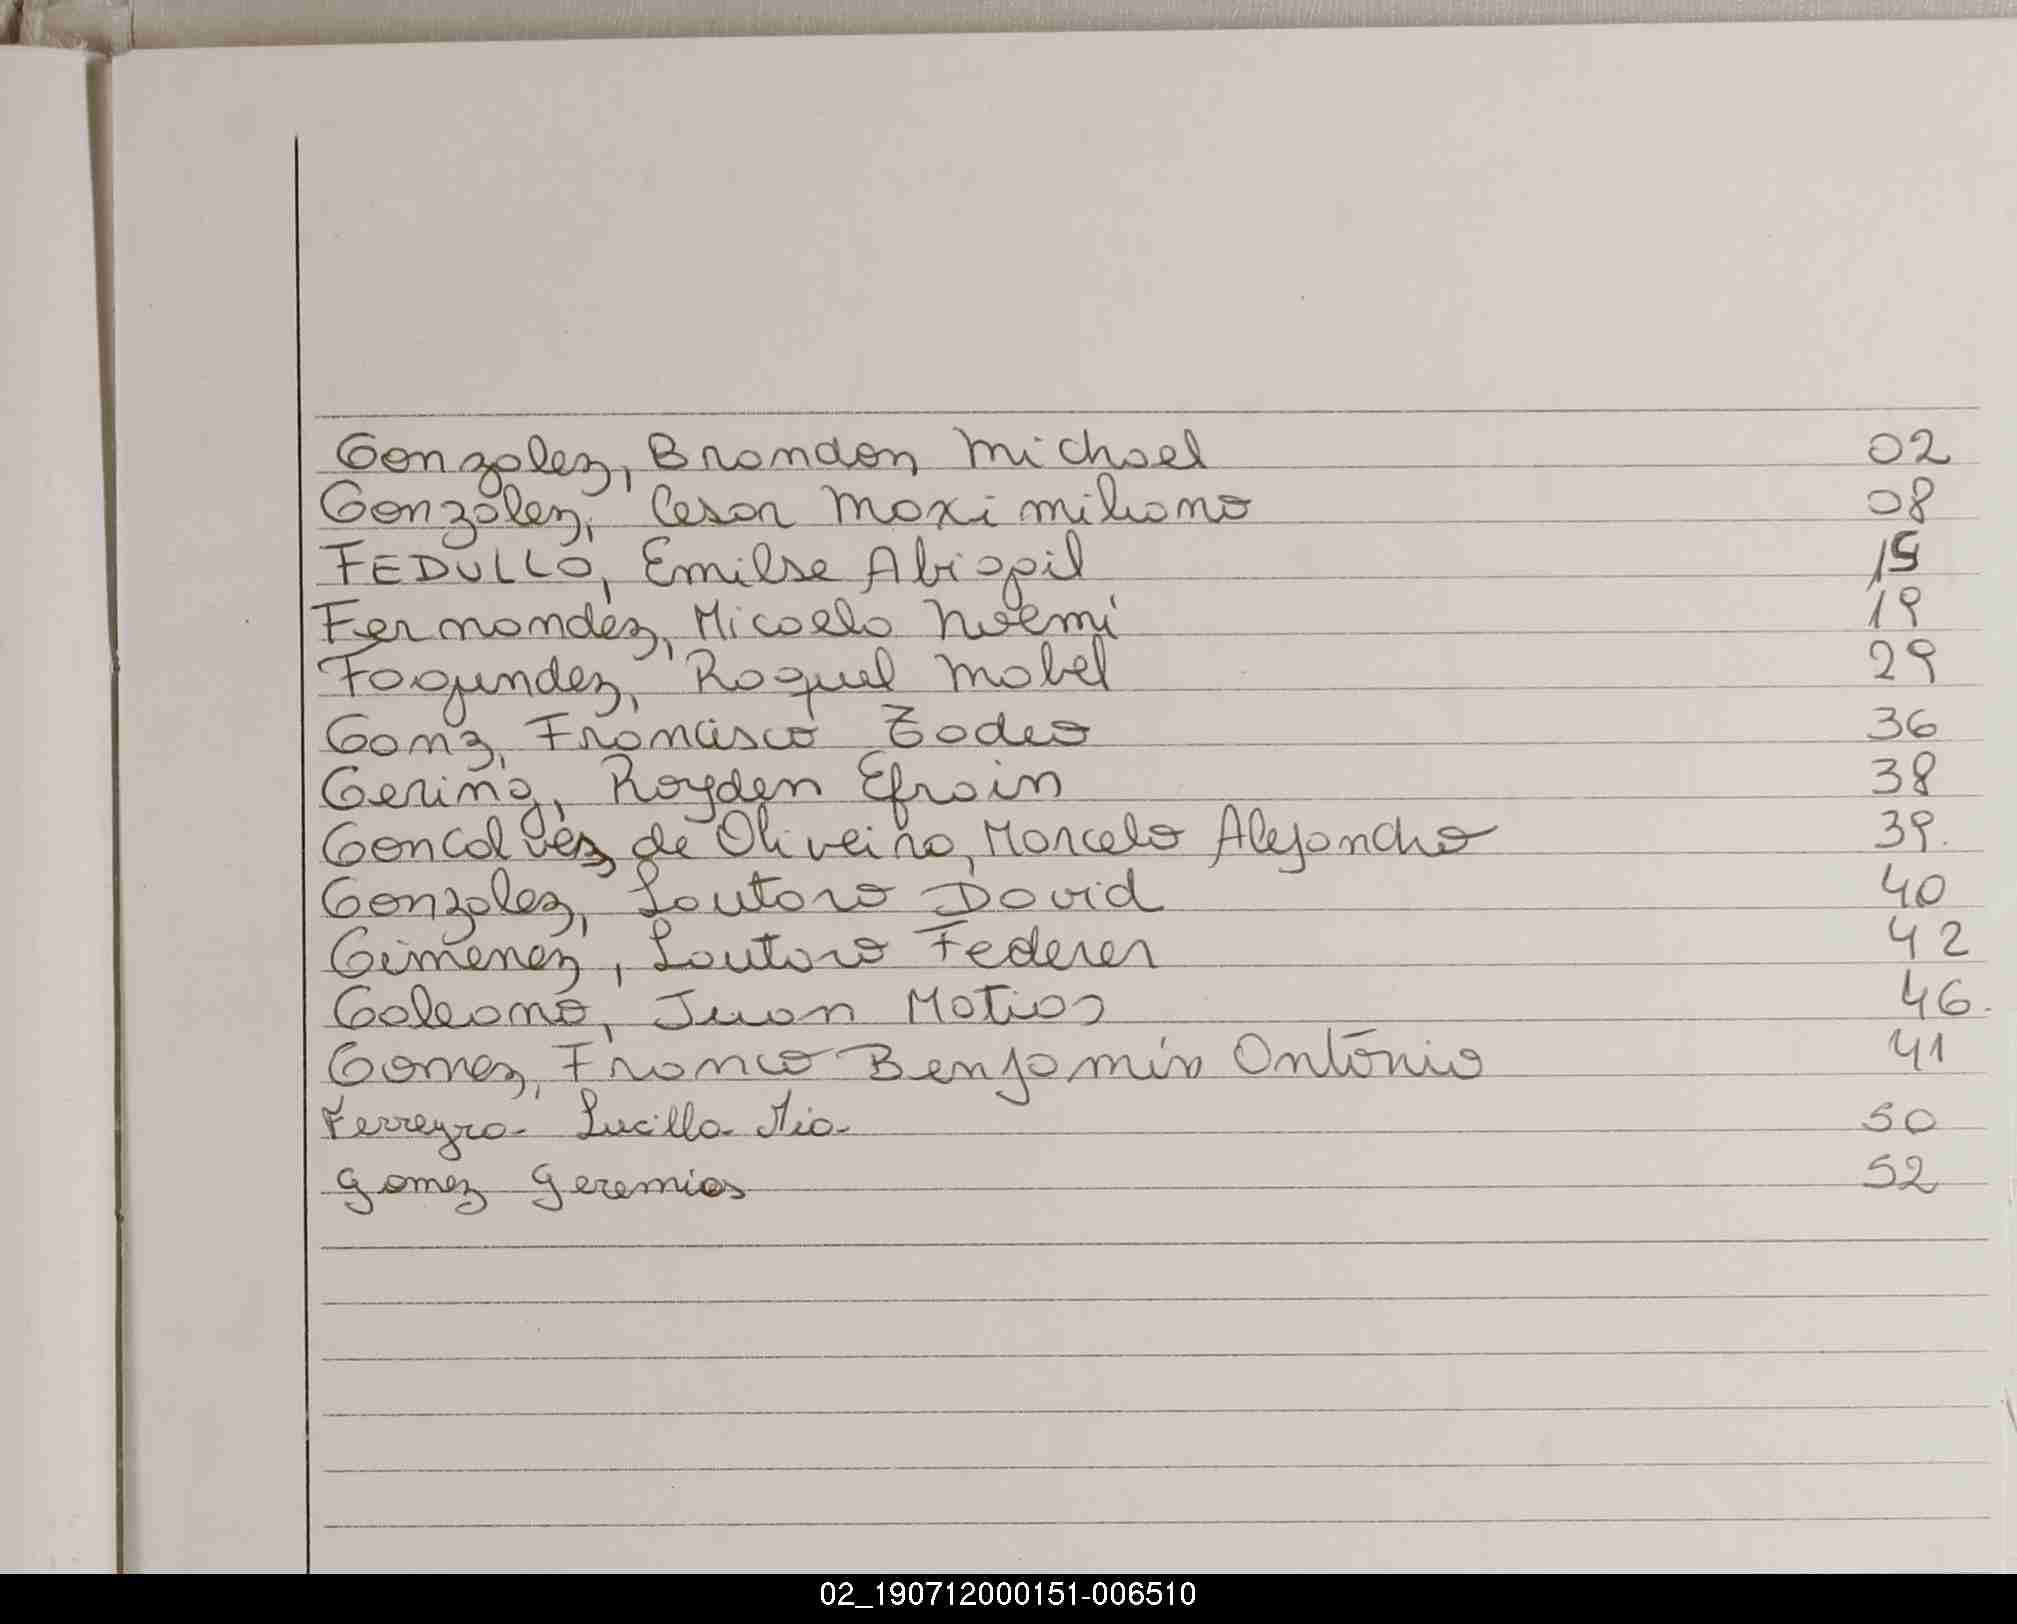 Gonzalez, Brandon Michael 02
Gonzalez, Cesar Maximiliano 08
FEDULLO, Emilse Abigail 15
Fernandez, Micaela Noemi 19
Fagundez, Raquel Mabel 29
Ganz, Francisco Eades 36
Gering, Royden Efrain 38
Goncalvez de Oliveira, Marcelo Alejandro 39.
Gonzalez, Lautaro David 40
Gimenez, Lautaro Federer 42
Galeano, Juan Matias 46.
Gomez, Franco Benjamín Antonio 41
Ferreyra Lucilla Mia 50
Gomez Geremias 52
02_190712000151-006510